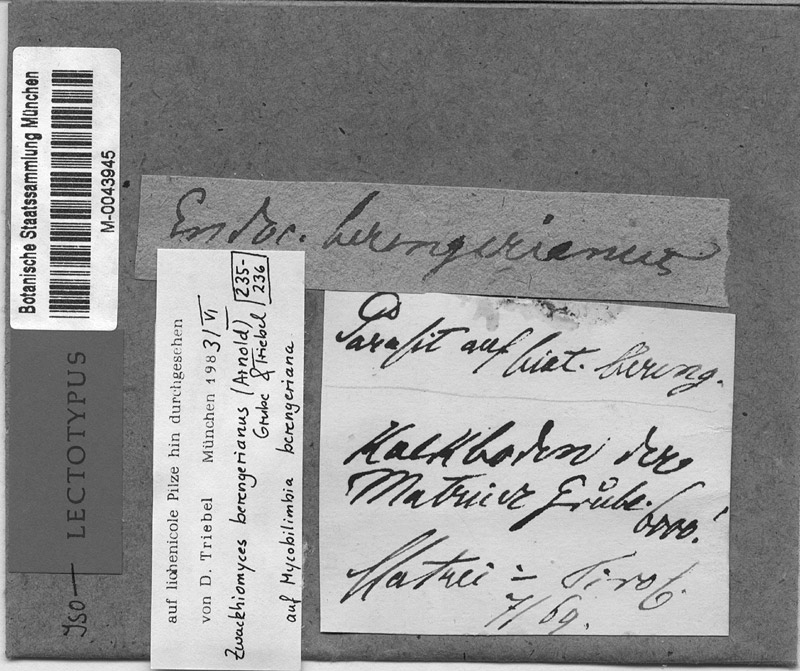 Botanische Staatssammlung München
M-0043945
Iso— LECTOTYPUS
Endoc. berengerianus
auf lichenicole Pilze hin durchgesehen
von D. Triebel München 1983/VI
Zwackhiomyces berengerianus (Arnold)
Grube & Triebel
235-
236
auf Mycobilimbia berengeriana
Parasit auf biat. bereng.
Kalkboden der
Matreier Grube. 6000'!
Matrei = Tirol.
7/69.